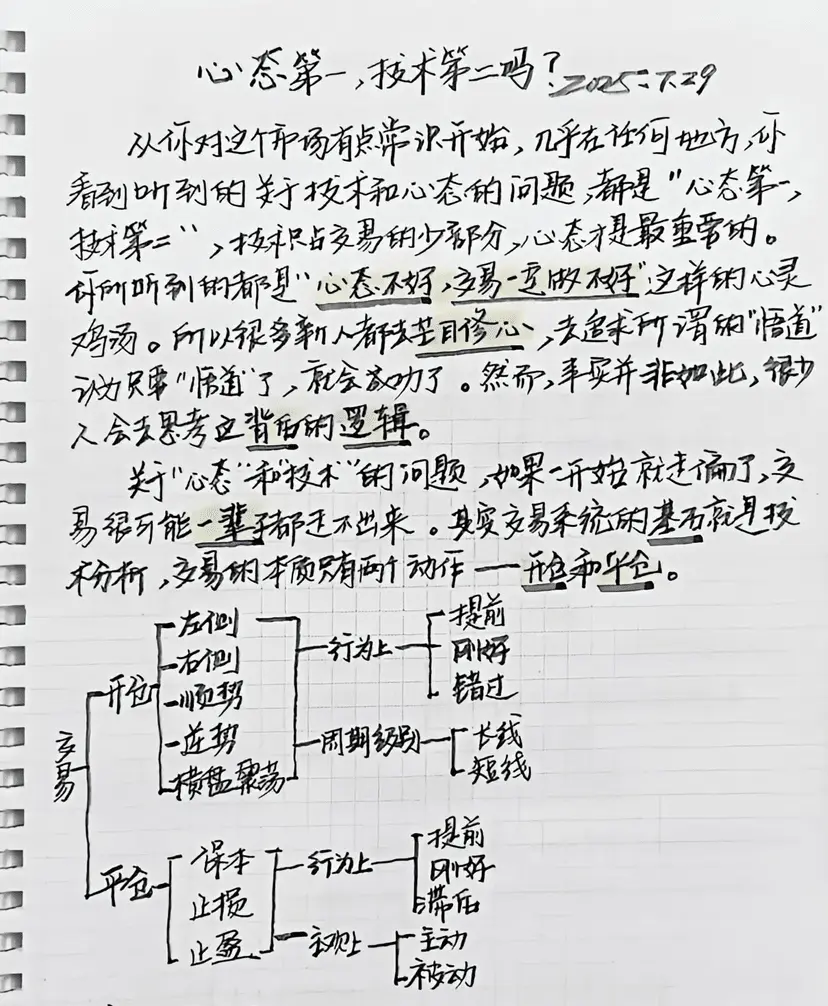 心态第一，技术第二吗？2025.7.29
从你对这个市场有点常识开始，几乎在任何地方，你
看到听到的关于技术和心态的问题，都是“心态第一，
技术第二”，技术只占交易的少部分，心态才是最重要的。
你所听到的都是“心态不好，交易一定做不好”这样的心灵
鸡汤。所以很多新人都去盲目修心，去追求所谓的“悟道”
认为只要“悟道”了，就会成功了。然而，事实并非如此，很少
人会去思考这背后的逻辑。
关于“心态”和“技术”的问题，如果一开始就走偏了，交
易很可能一辈子都走不出来。其实交易系统的基石就是技
术分析，交易的本质只有两个动作——开仓和平仓。
交易
开仓
左侧
右侧
顺势
逆势
横盘震荡
行为上
提前
刚好
错过
周期级别
长线
短线
平仓
保本
止损
止盈
行为上
提前
刚好
滞后
主观上
主动
被动